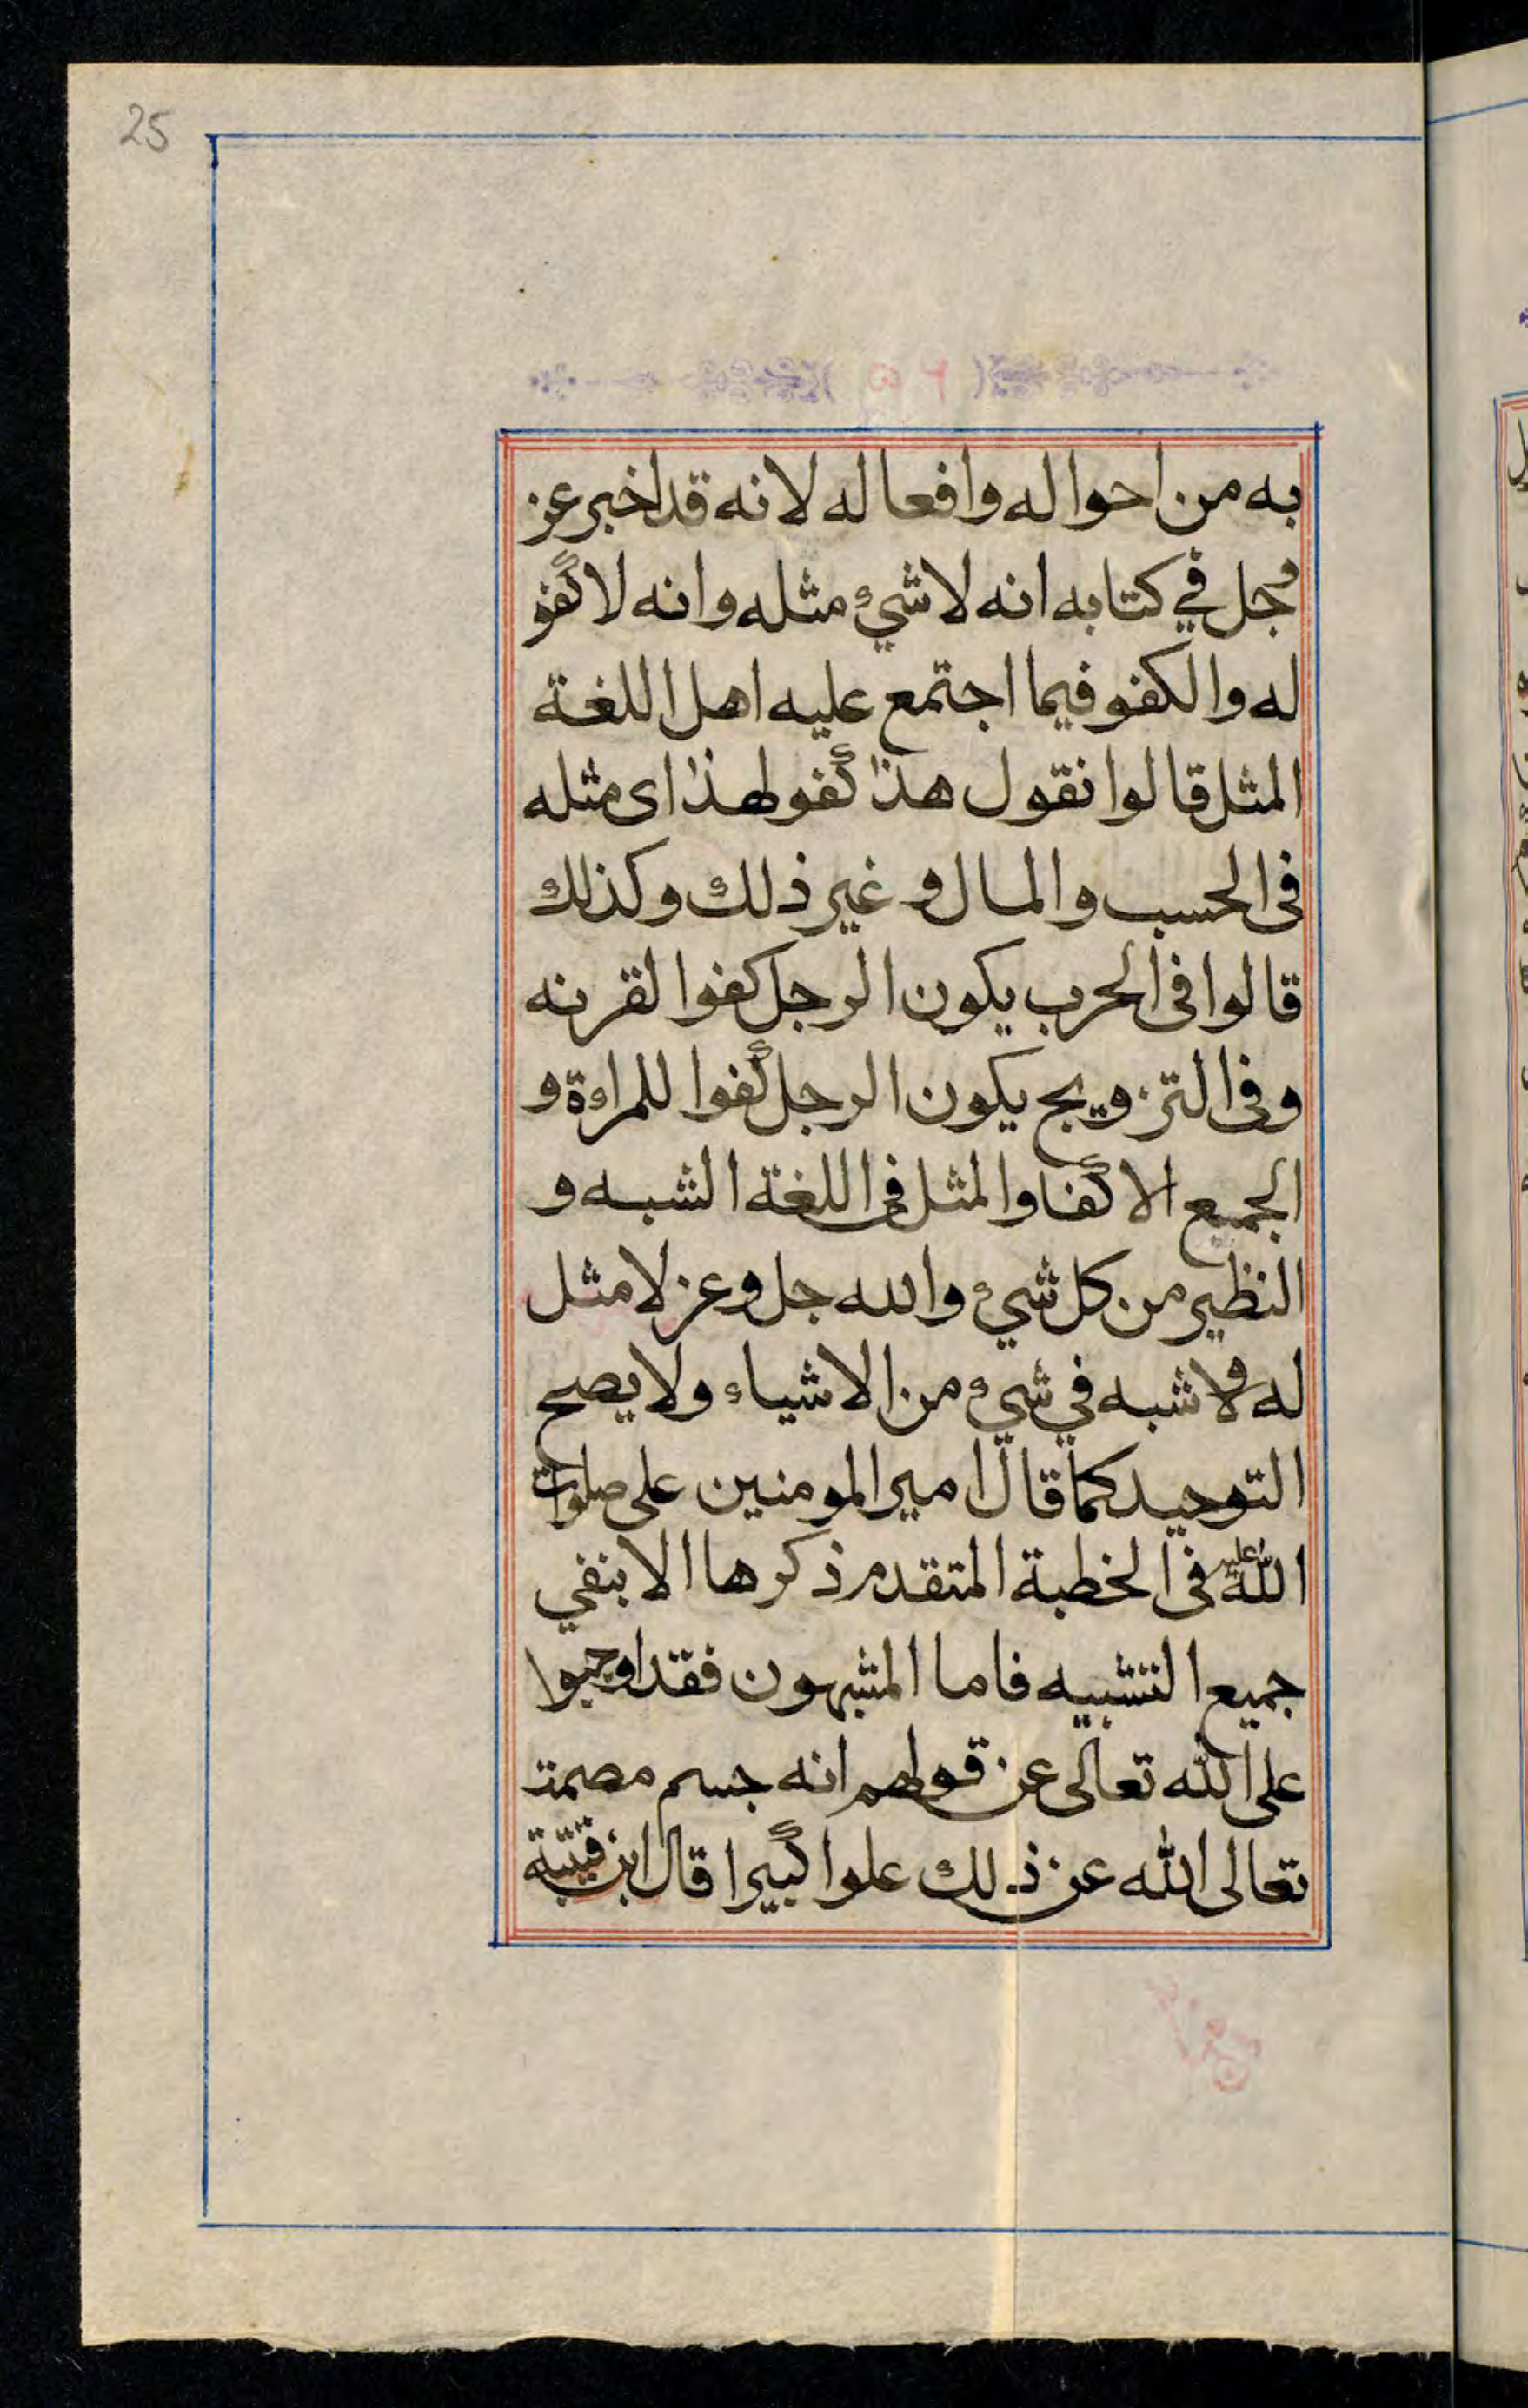 25
به من احواله وافعاله لانه قد اخبر عز
وجل في كتابه انه لا شيء مثله وانه لا كفو
له والكفو فيما اجتمع عليه اهل اللغة
المثل قالوا نقول هذا كفو لهذا اى مثله
فى الحسب والمال و غير ذلك وكذلك
قالوا فى الحرب يكون الرجل كفوا لقرنه
وفى التزويج يكون الرجل كفوا للمراءة و
الجميع الاكفا والمثل فى اللغة الشبه و
النظير من كل شيء والله جل وعز لا مثل
له ولا شبه في شيء من الاشياء ولا يصح
التوحيد كما قال امير المومنين على صلوات
الله عليه فى الخطبة المتقدم ذكرها الا بنفي
جميع التشبيه فاما المشبهون فقد اوجبوا
على الله تعالى عن قولهم انه جسم مصمت
تعالى الله عن ذلك علوا كبيرا قال ابن قتيبة